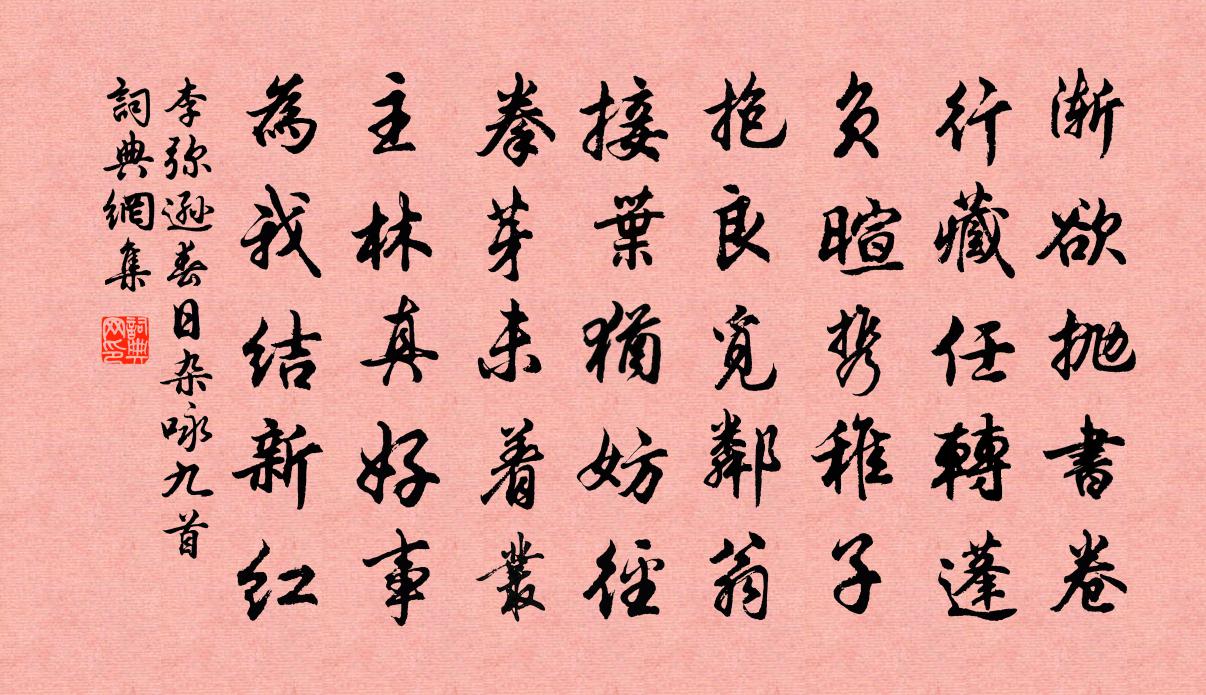 渐欲抛書卷
行藏任轉蓬
負暄携稚子
抱良覓鄰翁
接葉猶妨徑
拳芽未着叢
主林真好事
為我结新红
李弥遜春日杂咏九首
詞典網集
詞典网印